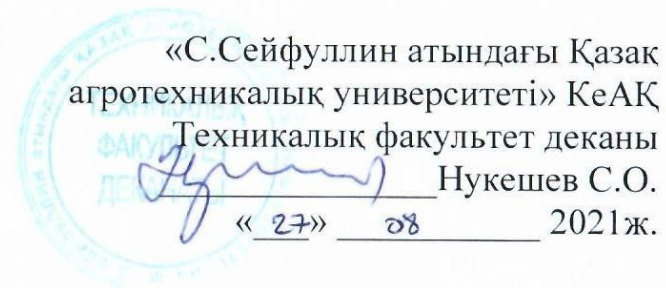 «С.Сейфуллин атындағы Қазақ
агротехникалық университеті» КеАҚ
Техникалық факультет деканы
Нукешев С.О.
«27» 08 2021ж.